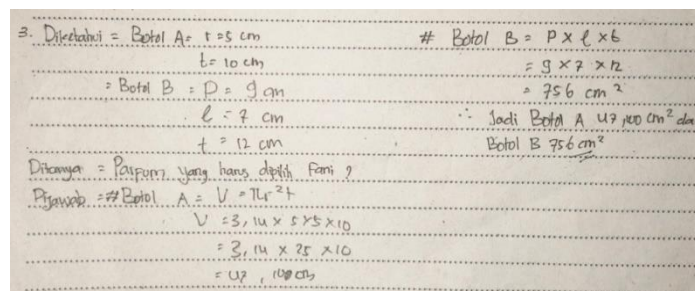 3. Diketahui = Botol A = r = 5 cm
t = 10 cm
= Botol B = P = 9 cm
l = 7 cm
t = 12 cm
Ditanya = Parfum yang harus dipilih Fani ?
Dijawab = # Botol A = V = πr²t
V = 3,14 x 5 x 5 x 10
= 3,14 x 25 x 10
= 47,100 cm
# Botol B = P x l x t
= 9 x 7 x 12
= 756 cm²
∴ Jadi Botol A 47,100 cm² dan
Botol B 756 cm²